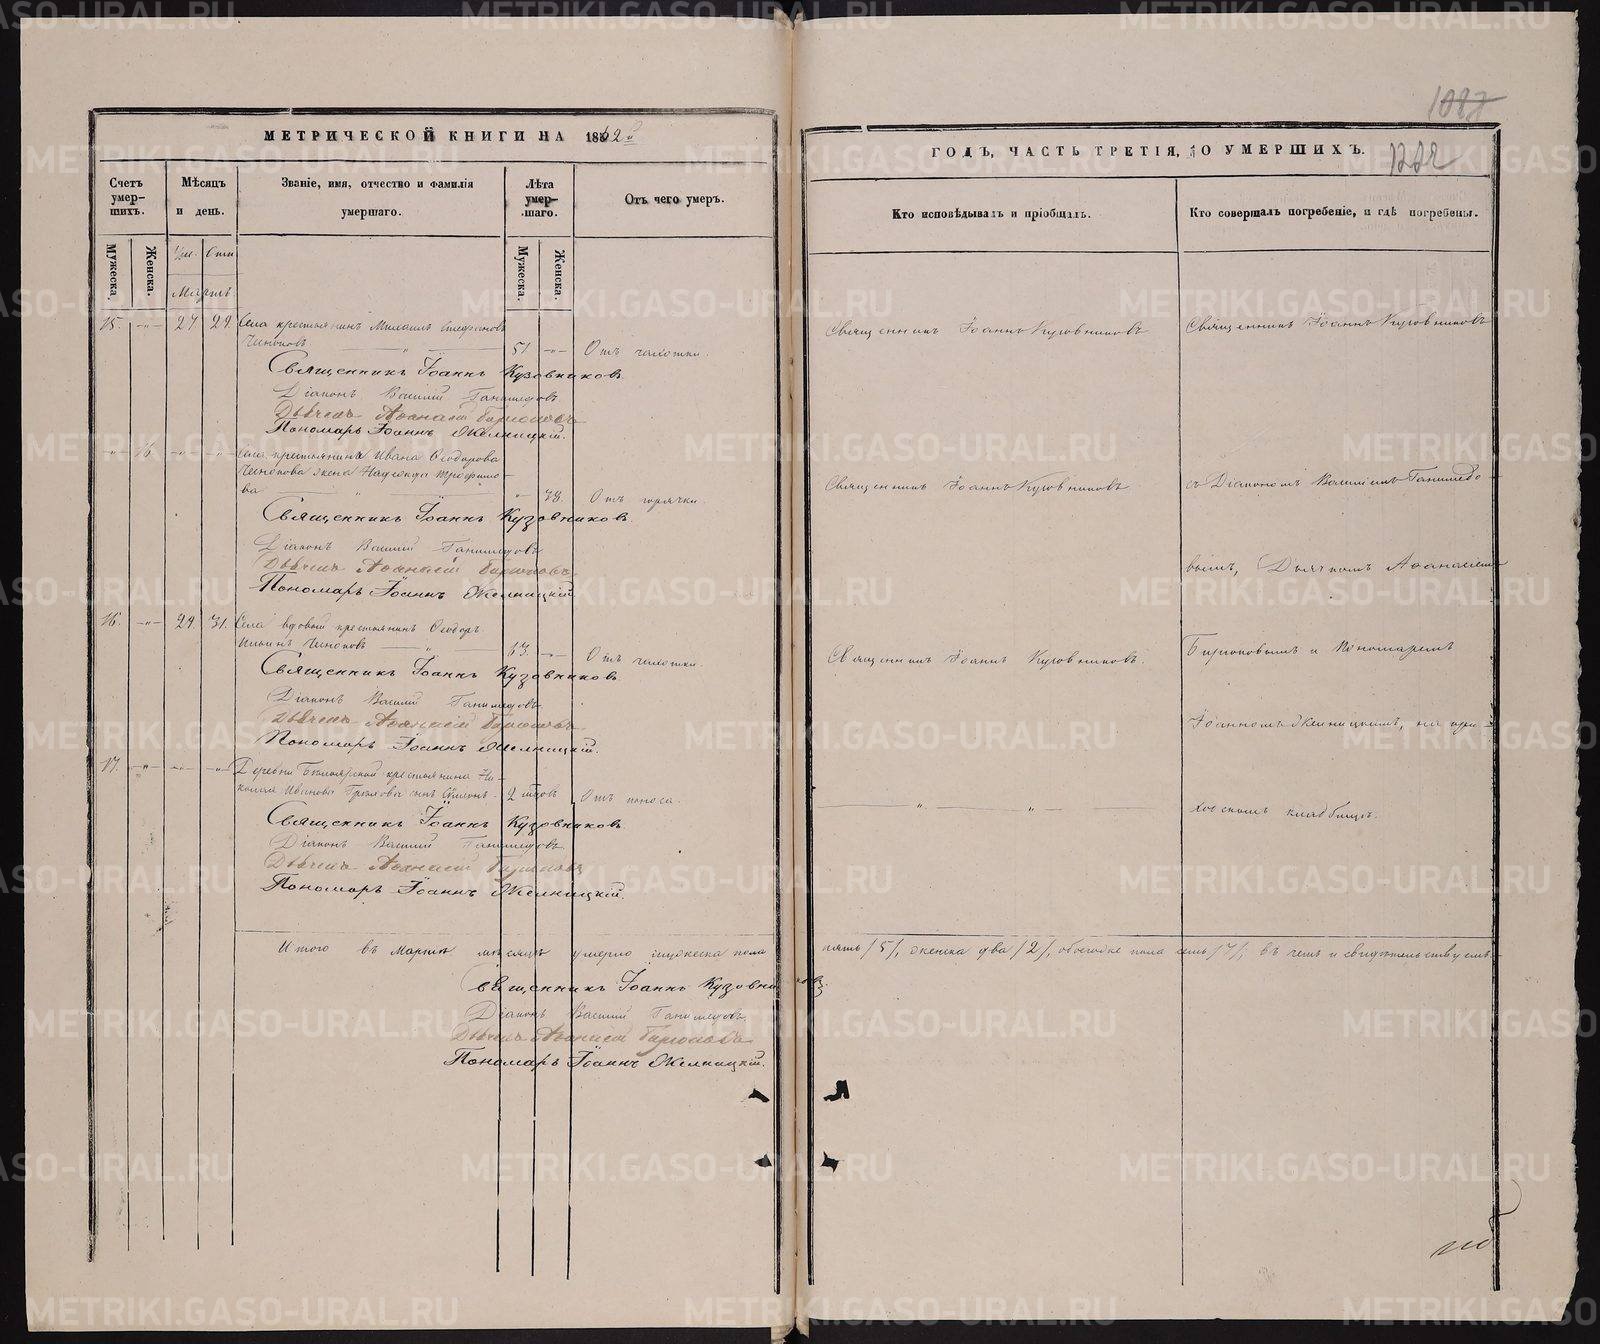 МЕТРИЧЕСКОЙ КНИГИ НА 1862й
ГОДЪ, ЧАСТЬ ТРЕТІЯ, О УМЕРШИХЪ.
Счетъ умер-шихъ.
Мѣсяцъ и день.
Званіе, имя, отчество и фамилія умершаго.
Лѣта умер-шаго.
Отъ чего умеръ.
Кто исповѣдывалъ и пріобщалъ.
Кто совершалъ погребеніе, и гдѣ погребены.
Мужеска.
Женска.
Мужеска.
Женска.
Мартъ.
15. 27 29. Села крестьянинъ Михаилъ Стефановъ
51 Отъ чахотки.
Священникъ Іоаннъ Кузовниковъ
Священникъ Іоаннъ Кузовниковъ
Священникъ Іоаннъ Кузовниковъ.
Діаконъ Василій Ганимедовъ
Дьячекъ Аѳанасій Бирюковъ
Пономарь Іоаннъ Желницкій.
Села крестьянина Ивана Ѳеодорова
жена Надежда Трофимо-
ва 38. Отъ горячки.
Священникъ Іоаннъ Кузовниковъ
съ Діакономъ Василіемъ Ганимедо-
Священникъ Іоаннъ Кузовниковъ.
Діаконъ Василій Ганимедовъ.
Дьячекъ Аѳанасій Бирюковъ
Пономарь Іоаннъ Желницкій
вымъ, Дьячкомъ Аѳанасіемъ
16. 29. 31. Села вдовый крестьянинъ Ѳеодоръ
Ильинъ 63. Отъ чахотки.
Священникъ Іоаннъ Кузовниковъ.
Бирюковымъ и Пономаремъ
Священникъ Іоаннъ Кузовниковъ
Діаконъ Василій Ганимедовъ.
Дьячекъ Аѳанасій Бирюковъ
Пономарь Іоаннъ Желницкій.
Іоанномъ Желницкимъ, на при-
17. Деревни Бѣлоярской крестьянина Ни-
колая Иванова сынъ Сѵмеонъ. Отъ поноса.
ходскомъ кладбищѣ.
Священникъ Іоаннъ Кузовниковъ.
Діаконъ Василій Ганимедовъ
Дьячекъ Аѳанасій Бирюковъ
Пономарь Іоаннъ Желницкій.
Итого въ Мартѣ мѣсяцѣ умерло мужеска пола
пять /5/, женска два /2/, обоегоже пола семь /7/; въ чемъ и свидѣтельствуемъ.
Священникъ Іоаннъ Кузовниковъ.
Діаконъ Василій Ганимедовъ.
Дьячекъ Аѳанасій Бирюковъ
Пономарь Іоаннъ Желницкій.
METRIKI.GASO-URAL.RU